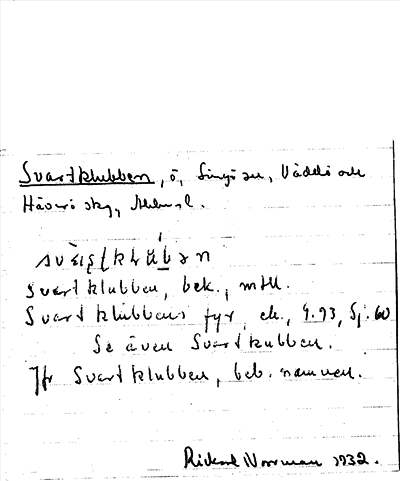 Svartklubben, ö, Singö sn, Väddö och
Häverö skg,
Svartklubben, bek., mtl.
Svartklubbens fyr, ek., 4.93, Sj: 60
Se även Svartkubben.
Jfr Svartklubben, beb. namnen.
Rickard Norrman 1932.